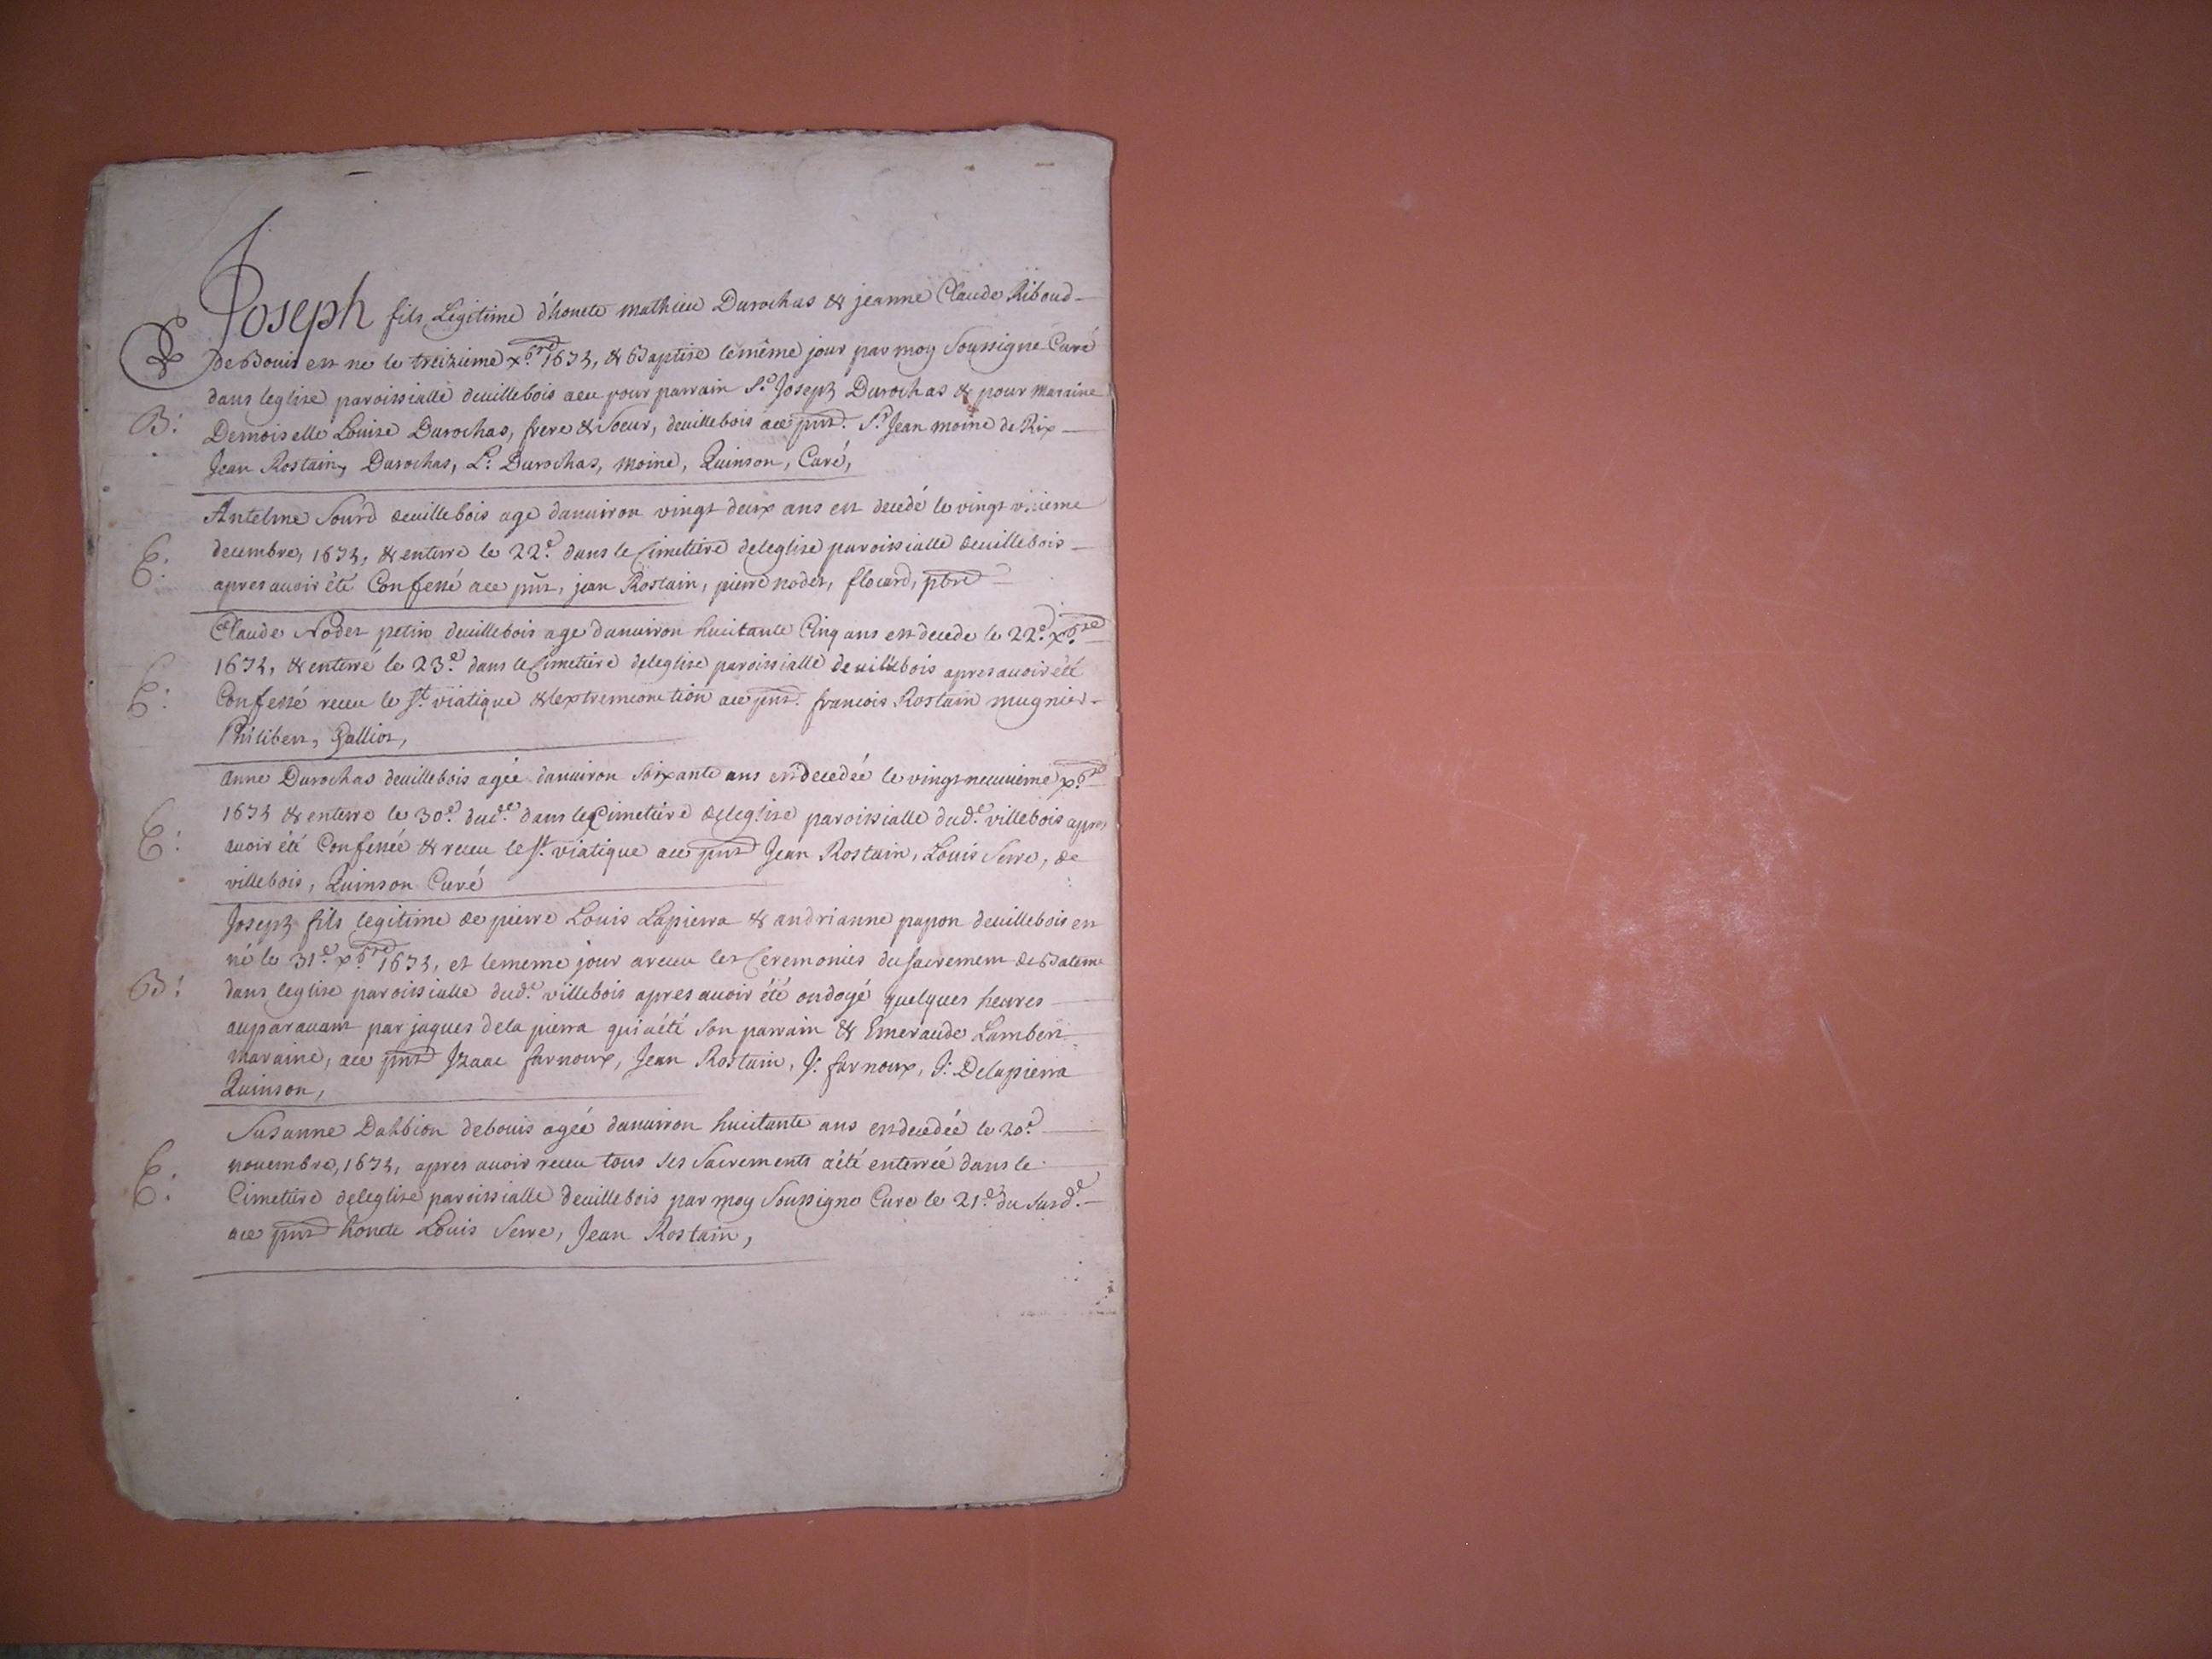 Joseph fils Legitime d'honete mathieu Durochas & jeanne Claude Riboud
de Bouis est né le treizieme xbre 1673, & Baptise le même jour par moy Soussigné Curé
dans leglise paroissialle deuillebois a eu pour parrain Sr Joseph Durochas & pour maraine
B: Demoiselle Louise Durochas, frere & Soeur, deuillebois a ce pnt. Sr Jean moine de Rix
Jean Rostain, Durochas, L. Durochas, moine, Quinson, Curé,
Antelme Sourd deuillebois age danuiron vingt deux ans est decedé le vingt unieme
E: decembre, 1673, & enterré le 22e dans le Cimetiere deleglise paroissialle deuillebois
apres auoir été Confessé a ce pnt, jean Rostain, pierre nodet, flocard, ptre
Claude Nodet petin deuillebois age danuiron huictante Cinq ans est decede le 22e xbre
E: 1673, & enterré le 23e dans le Cimetiere deleglise paroissialle deuillebois apres auoir été
Confessé receu le St viatique & lextremeonction a ce pnt. francois Rostain mugnier
Philibert, Galliot,
anne Durochas deuillebois agée danuiron soixante ans est decedée le vingt neuuieme xbre
E: 1673 & enterre le 30e dud. dans le Cimetiere deleglise paroissialle dud. villebois apres
auoir été Confessée & receu le St viatique a ce pnt Jean Rostain, Louis Serre, de
villebois, Quinson Curé
Joseph fils legitime de pierre Louis Lapierra & andrianne papon deuillebois est
né le 31e xbre 1673, et le meme jour a receu les Ceremonies du sacrement de Bateme
B: dans leglise paroissialle dud. villebois apres auoir été ondoyé quelques heures
auparauant par jaques dela pierra qui a été son parrain & Emeraude Lambert
maraine, a ce pnt Izaac farnoux, Jean Rostain, J. farnoux, J. Delapierra
Quinson,
Susanne Dahbion debouis agée danuiron huictante ans est decedée le 20e
E: nouembre, 1673, apres auoir receu tous ses Sacrements a été enterrée dans le
Cimetiere deleglise paroissialle deuillebois par moy Soussigne Cure le 21e du susd.
a ce pnt honete Louis Serre, Jean Rostain,